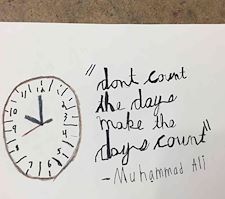 "dont count
the days
make the
days count"
- Muhammad Ali
11 12 1
10 2
9 3
8 4
7 6 5